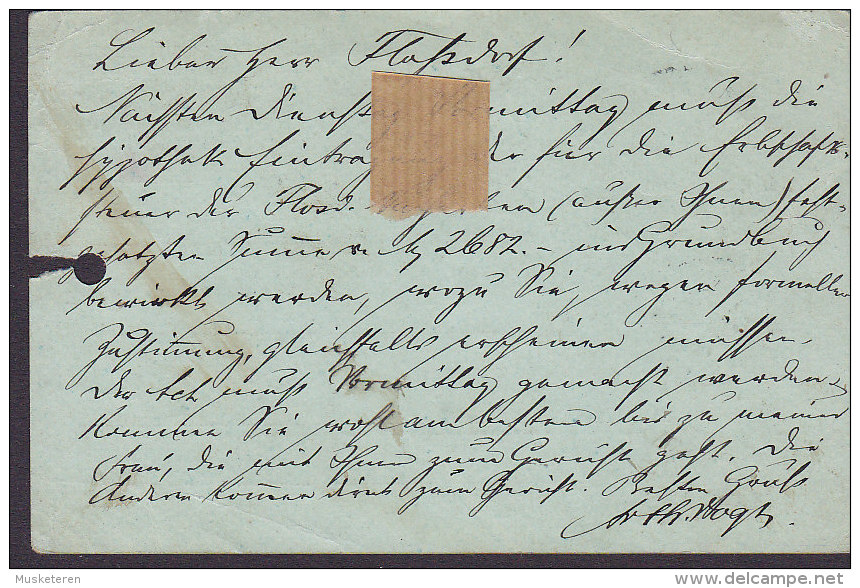 Lieber Herr Flossdorf!
Nächsten Dienstag Vormittag muss die
Hypothek Eintragung der für die Erbschafts-
steuer der Flosd. Erben (außer Ihnen) fest-
gesetzten Summe v. M 2682.- ins Grundbuch
bewirkt werden, wozu Sie, wegen formeller
Zustimmung, gleichfalls erscheinen müssen.
Der Act muss Vormittag gemacht werden.
Kommen Sie wohl am besten bis zu meiner
Frau, die mit Ihnen zum Gericht geht. Die
Anderen kommen direct zum Gericht. Besten Gruss
Vogt.
Musketeren
delcampe.net